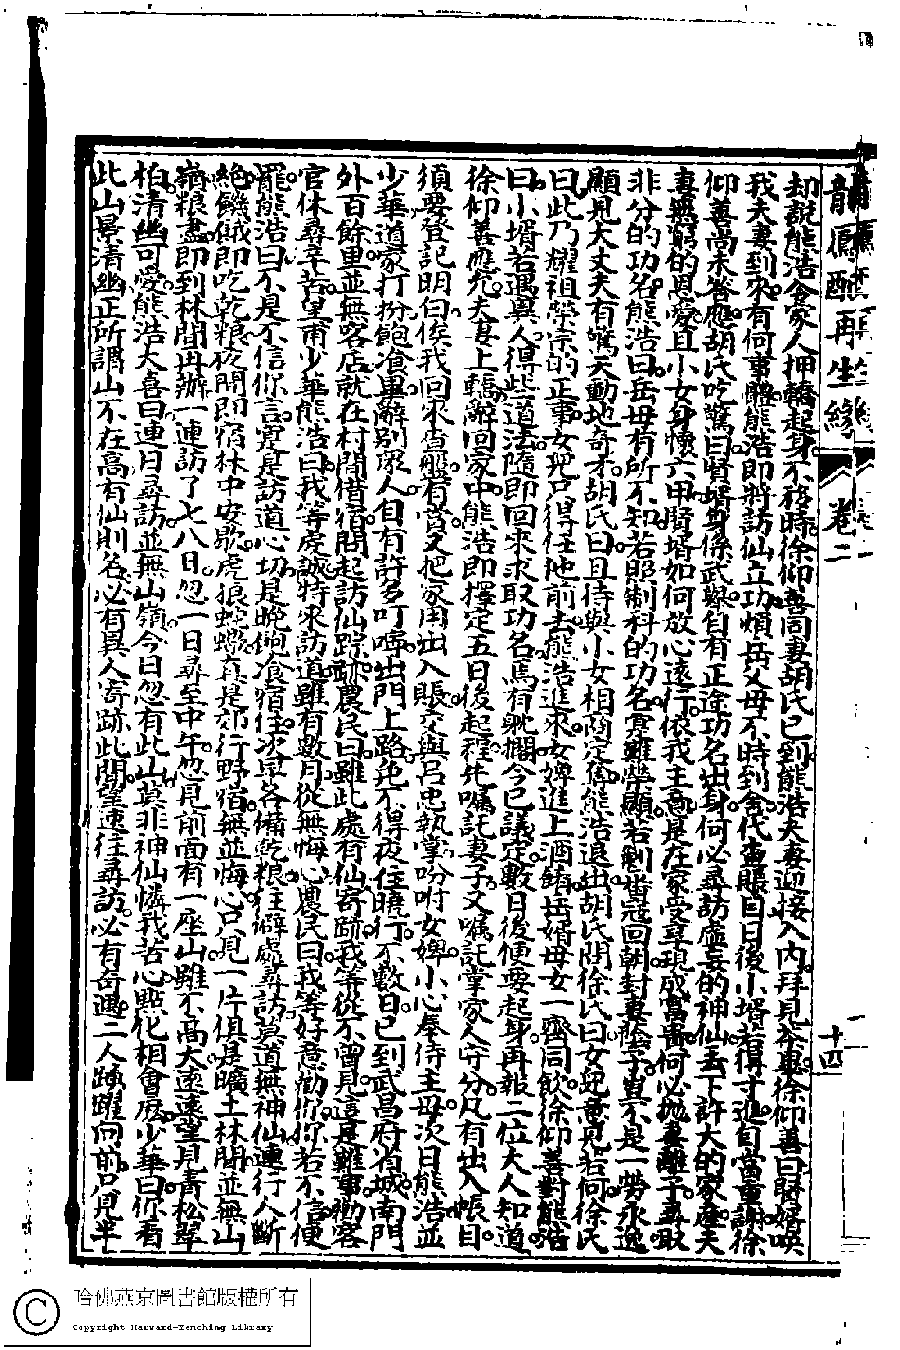 龍鳳配再生緣 卷二 十四
却說熊浩令家人押轎起身不移時徐仰善同妻胡氏已到熊浩夫妻迎接入內拜見茶畢徐仰善曰賢婿喚
我夫妻到來有何事體熊浩即將訪仙立功煩岳父母不時到舍代查賬目日後小婿若得寸進自當重謝徐
仰善尚未答應胡氏吃驚曰賢婿身係武舉自有正途功名出身何必尋訪虛妄的神仙丟下許大的家產夫
妻無窮的恩愛且小女身懷六甲賢婿如何放心遠行依我主意是在家受享現成富貴何必拋妻離子尋取
非分的功名熊浩曰岳母有所不知若照制科的功名實難榮顯若剿番寇回朝封妻蔭子豈不是一勞永逸
顯見大丈夫有驚天動地奇才胡氏曰且待與小女相商定奪熊浩退出胡氏問徐氏曰女兒意見若何徐氏
曰此乃耀祖榮宗的正事女兒只得任他前去熊浩進來女婢進上酒餚岳婿母女一齊同飲徐仰善對熊浩
曰小婿若遇異人得些道法隨即回來求取功名焉有躭擱今已議定數日後便要起身再報二位大人知道
徐仰善應允夫妻上轎辭回家中熊浩即擇定五日後起程先囑託妻子又囑託掌家人守分凡有出入帳目
須要登記明白俟我回來查盤有賞又把家用出入賬交與呂忠執掌吩咐女婢小心奉侍主母次日熊浩並
少華道家打扮飽飡畢辭別眾人自有許多叮嚀出門上路免不得夜住曉行不數日已到武昌府省城南門
外百餘里並無客店就在村間借宿問起訪仙踪跡農民曰雖此處有仙寄跡我等從不曾見這是難事勸客
官休尋辛苦望甫少華熊浩曰我等虔誠特來訪道雖有數月從無悔心農民曰我等好意勸你你若不信便
罷熊浩曰不是不信你言實是訪道心切是晚飽飡宿住次早各備乾粮往僻處尋訪莫道無神仙連行人斷
絕饑餓即吃乾粮夜間即宿林中安歇虎狼蛇蝎真是郊行野宿無並悔心只見一片俱是曠土林間並無山
嶺粮盡即到林間再辦一連訪了七八日忽一日尋至中午忽見前面有一座山雖不高大遠遠望見青松翠
柏清幽可愛熊浩大喜曰連日尋訪並無山嶺今日忽有此山莫非神仙憐我苦心點化相會麼少華曰你看
此山景清幽正所謂山不在高有仙則名必有異人寄跡此間望速往尋訪必有奇遇二人踴躍向前只見半
哈佛燕京圖書館版權所有
Copyright Harvard-Yenching Library